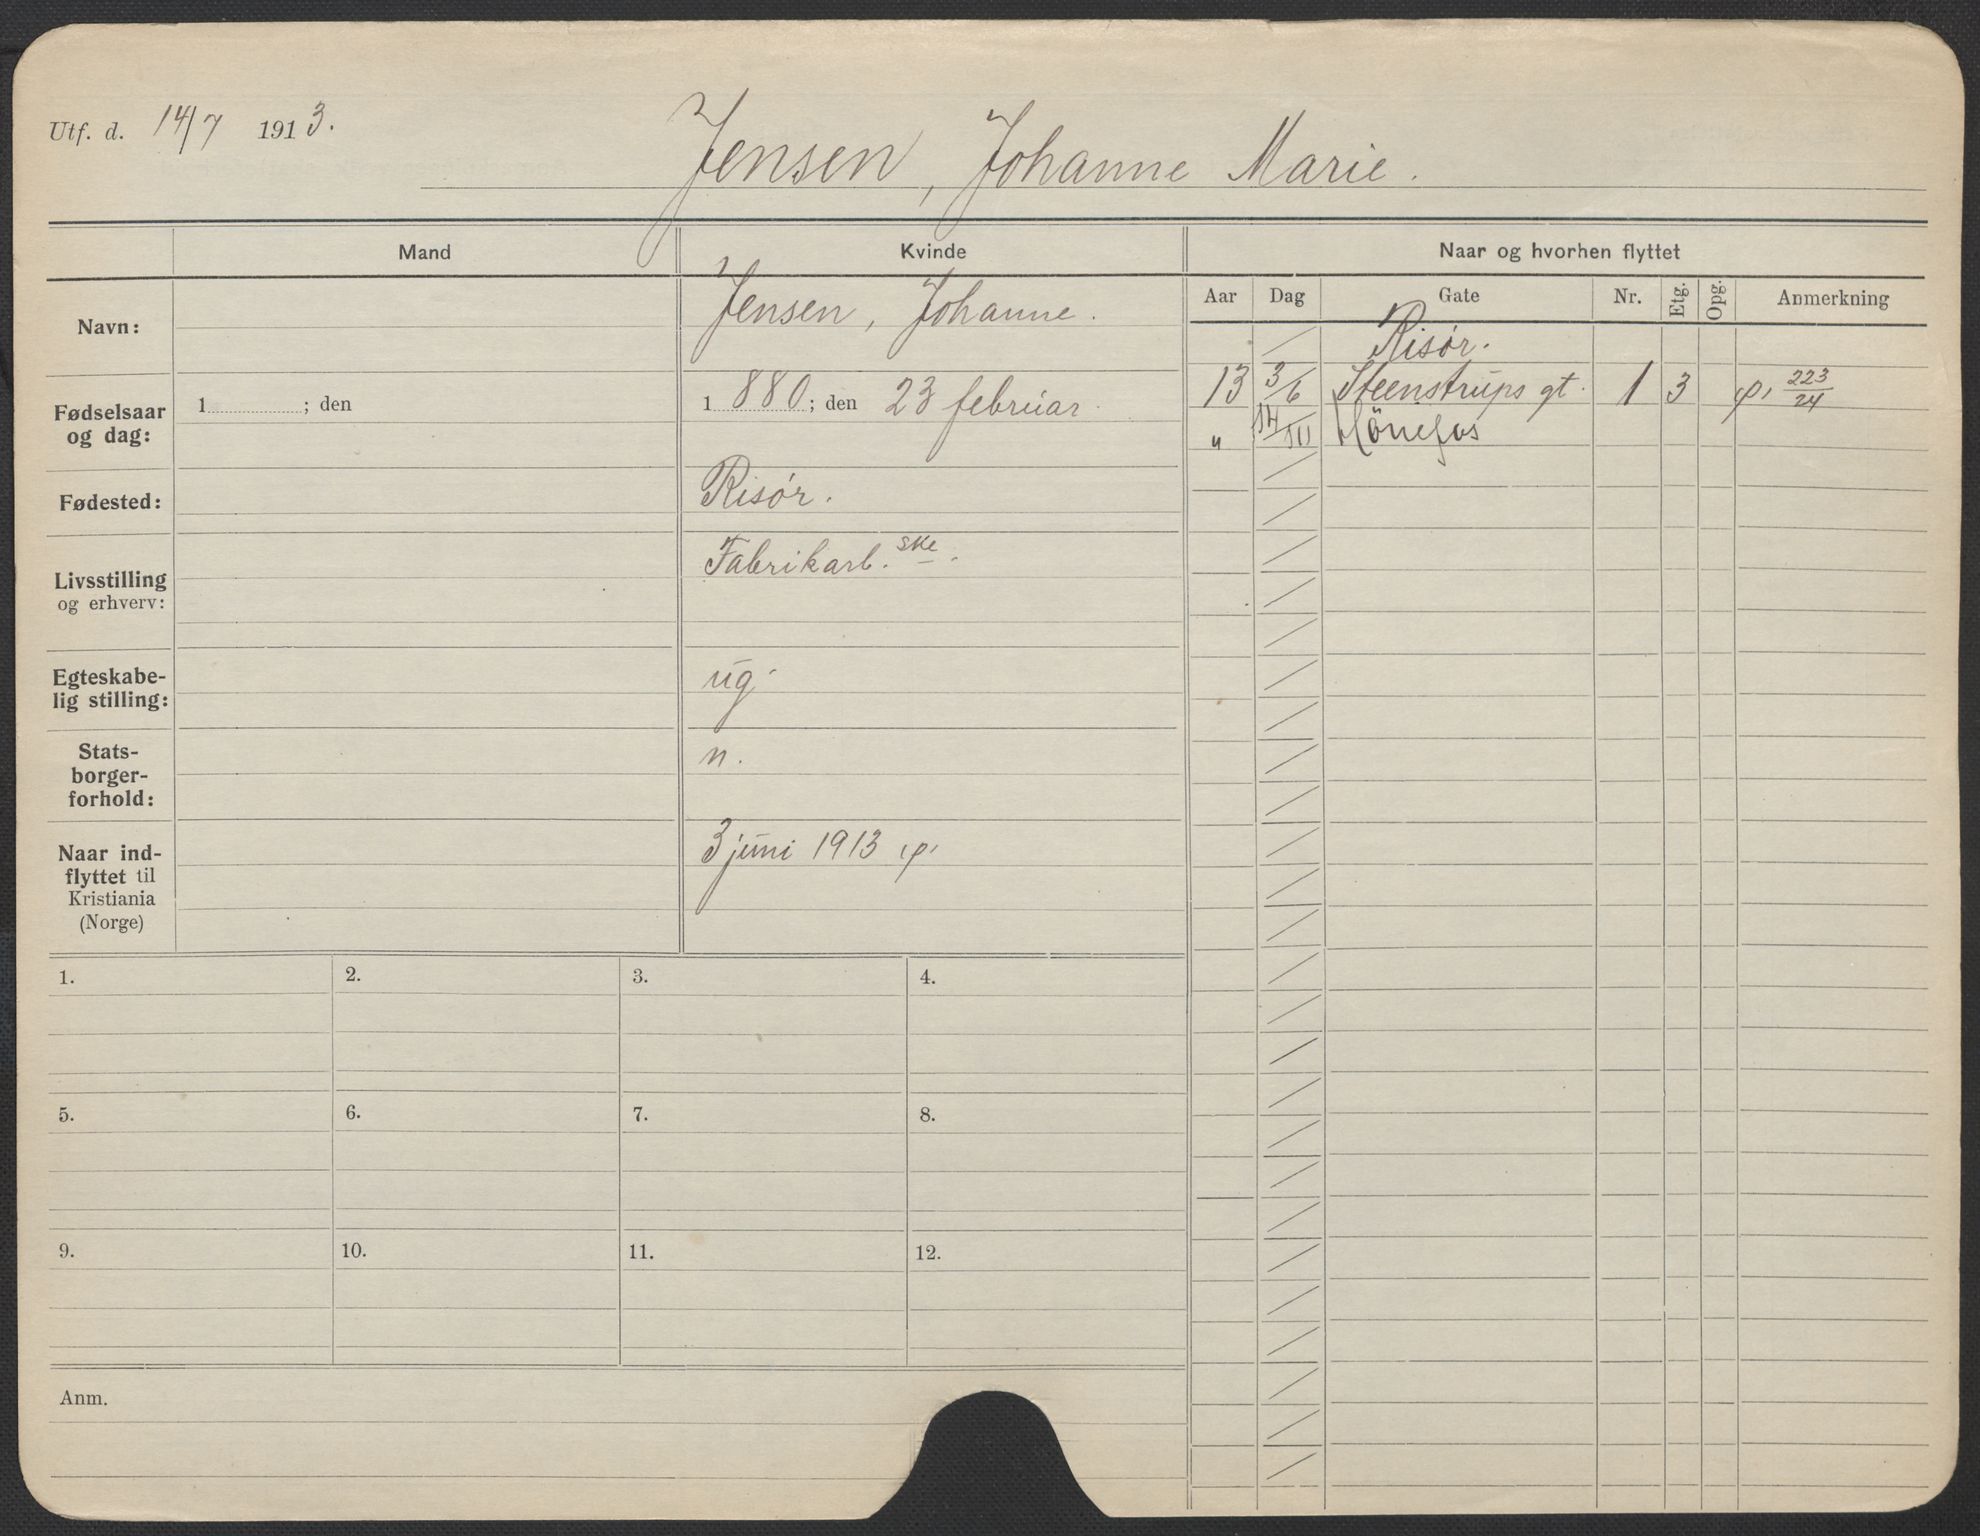 Utf. d. 14/7 1913.
Jensen, Johanne Marie.
Mand
Kvinde
Naar og hvorhen flyttet
Aar Dag Gate Nr. Etg. Opg. Anmerkning
Navn:
Jensen, Johanne.
Fødselsaar
og dag:
1 ; den
1880; den 23 februar.
Fødested:
Risør.
Livsstilling
og erhverv:
Fabrikarb.ske.
Egteskabe-
lig stilling:
ug.
Stats-
borger-
forhold:
n.
Naar ind-
flyttet til
Kristiania
(Norge)
3 juni 1913
Risør.
13 3/6 Steenstrups gt. 1 3 223/24
" 14/10 Hönefos
1. 2. 3. 4.
5. 6. 7. 8.
9. 10. 11. 12.
Anm.